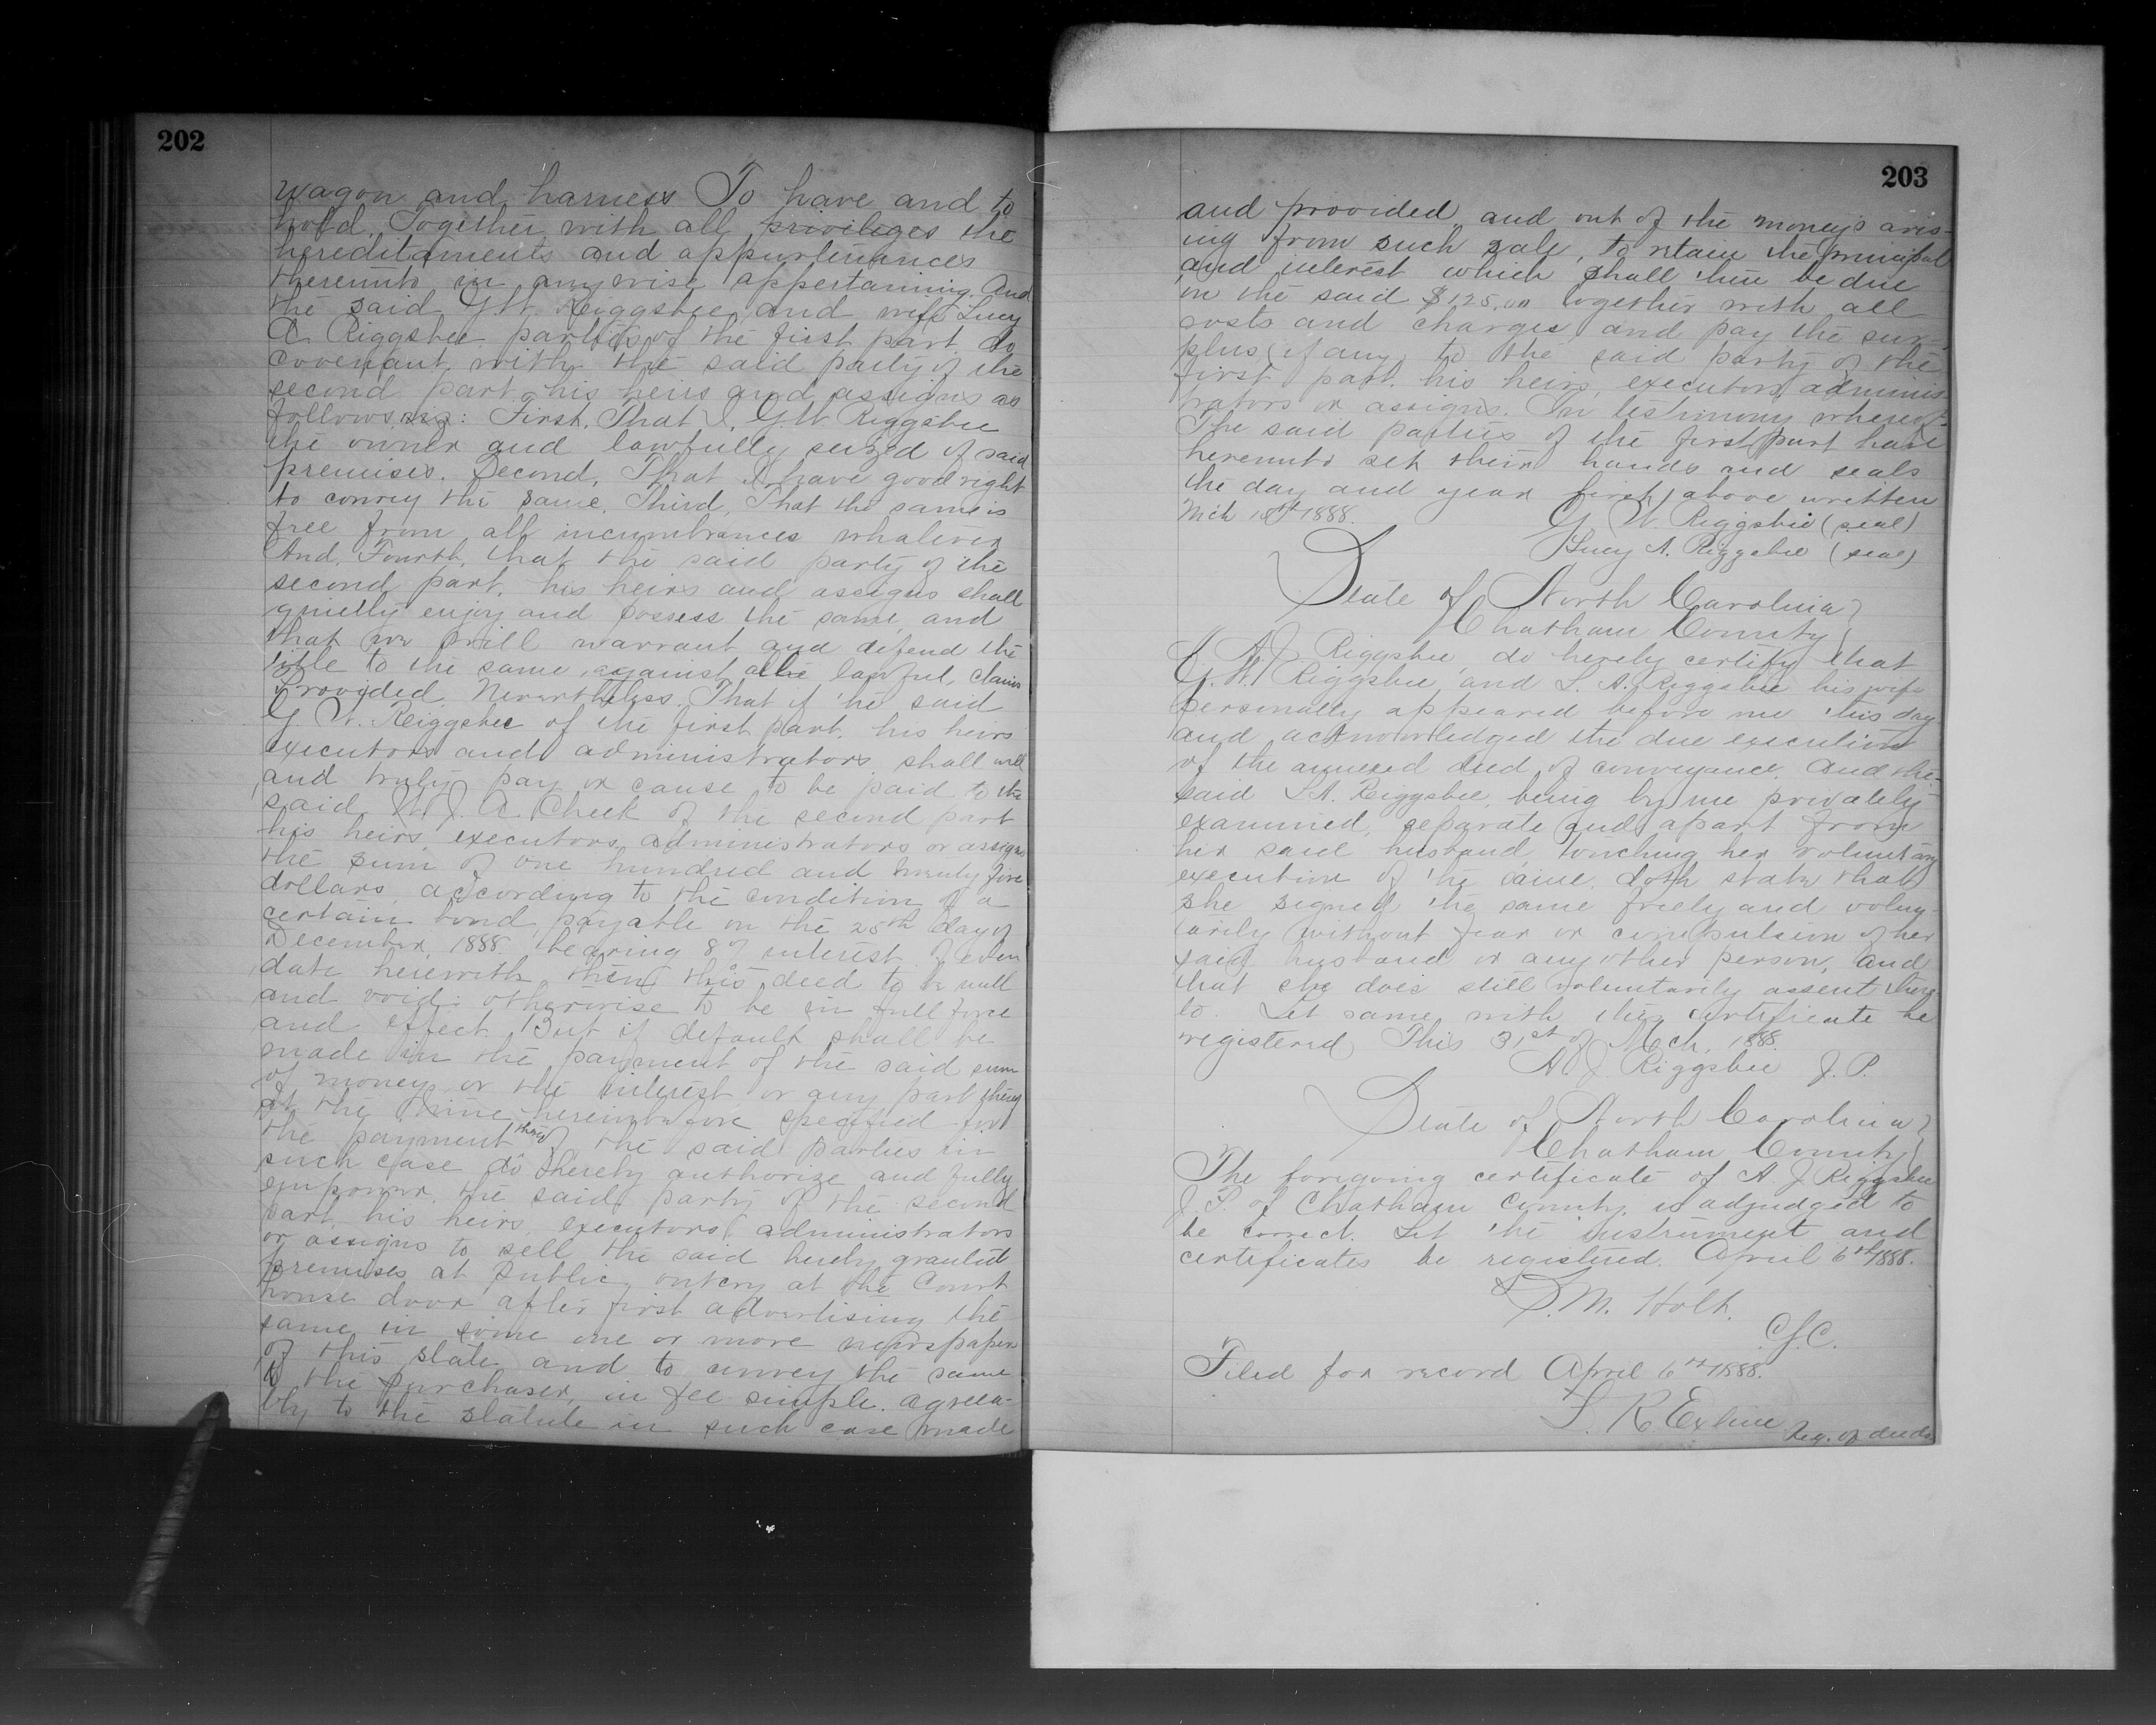 202
wagon and harness To have and to
hold. Together with all privileges the
hereditaments and appurtenances
thereunto in anywise appertaining. And
the said G W. Riggsbee and wife Lucy
A Riggsbee parties of the first part do
covenant with the said party of the
second part his heirs and assigns as
follows, viz: First, That I, G W Riggsbee
the owner and lawfully seized of said
premises. Second, That I have good right
to convey the same. Third, That the same is
free from all incumbrances whatever
And, Fourth, that the said party of the
second part, his heirs and assigns shall
quietly enjoy and possess the same, and
that we will warrant and defend the
title to the same against all lawful claims
Provided, Nevertheless. That if the said
G. W. Riggsbee of the first part, his heirs
executors and administrators, shall well
and truly pay or cause to be paid to the
said W. J. A. Cheek of the second part
his heirs, executors, administrators or assigns
the sum of one hundred and twenty five
dollars, according to the condition of a
certain bond, payable on the 25th day of
December, 1888. bearing 8% interest of even
date herewith then this deed to be null
and void: otherwise to be in full force
and effect. But if default shall be
made in the payment of the said sum
of money or the interest or any part thereof
at the time hereinbefore specified for
the payment thereof the said parties in
such case do hereby authorize and fully
empower. the said party of the second
part, his heirs, executors, administrators
or assigns to sell the said hereby granted
premises at public outcry at the Court
house door after first advertising the
same in some one or more newspaper
of this state and to convey the same
to the purchaser, in fee simple. agreea-
bly to the statute in such case made
203
and provided, and out of the moneys aris-
ing from such sale, to retain the principal
and interest which shall then be due
on the said $125.00 together with all
costs and charges and pay the sur-
plus (if any) to the said party of the
first part. his heirs, executors, adminis-
trators or assigns. In testimony whereof
The said parties of the first part have
hereunto set their hands and seals
the day and year first above written
Mch 1888.
G. W. Riggsbee (seal)
Lucy A. Riggsbee (seal)
State of North Carolina
Chatham County
I A. J. Riggsbee do hereby certify that
G. W. Riggsbee and L. A. Riggsbee his wife
personally appeared before me this day
and acknowledged the due execution
of the annexed deed of conveyance. And the
said L A. Riggsbee, being by me privately
examined, separate and apart from
her said husband, touching her voluntary
execution of the same, doth state that
she signed the same freely and volun-
tarily without fear or compulsion of her
said husband or any other person, and
that she does still voluntarily assent there-
to. Let same with this certificate be
registered This 31st of Mch, 1888.
A J Riggsbee J. P.
State of North Carolina
Chatham County
The foregoing certificate of A. J Riggsbee
J. P. of Chatham County is adjudged to
be correct. Let the instrument and
certificates be registered. April 6th 1888.
S. M. Holt.
C.S.C.
Filed for record April 6th 1888.
Reg. of deeds